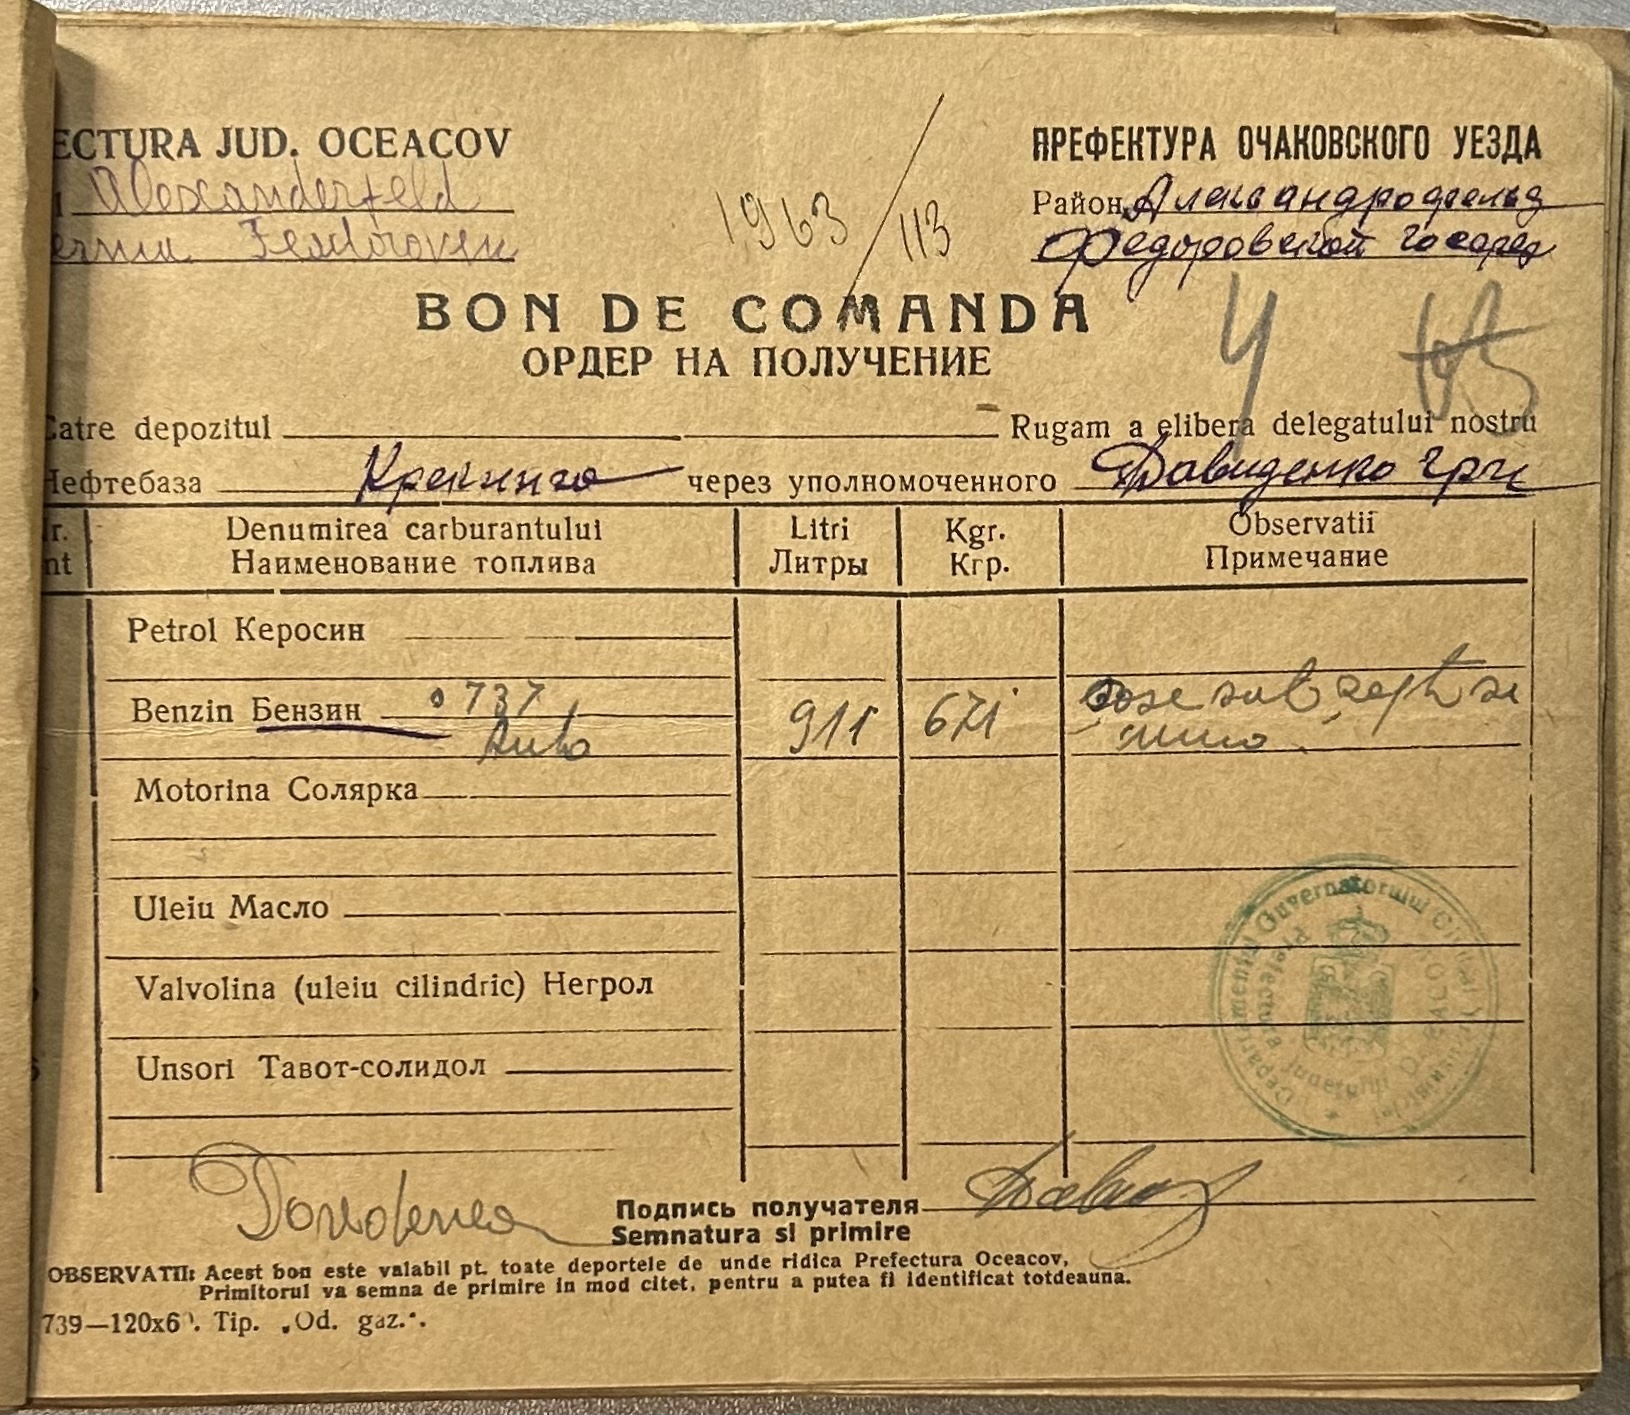 ECTURA JUD. OCEACOV
Alexanderfeld
Feodoroven
1963/113
ПРЕФЕКТУРА ОЧАКОВСКОГО УЕЗДА
Район Александрофельд
Федоровской
BON DE COMANDA
ОРДЕР НА ПОЛУЧЕНИЕ
4
Catre depozitul Rugam a elibera delegatului nostru
Нефтебаза Крекинго через уполномоченного Давиденко Гри
Nr. Denumirea carburantului Litri Kgr. Observatii
nt Наименование топлива Литры Кгр. Примечание
Petrol Керосин
Benzin Бензин 0737 911 671
Auto
Motorina Солярка
Uleiu Масло
Valvolina (uleiu cilindric) Негрол
Unsori Тавот-солидол
Departamentul Guvernatorului Civil al Transnistriei
Prefectura Judetului
Подпись получателя
Semnatura si primire
OBSERVATII: Acest bon este valabil pt. toate deportele de unde ridica Prefectura Oceacov,
Primitorul va semna de primire in mod citet, pentru a putea fi identificat totdeauna.
739—120x6 . Tip. „Od. gaz.“.